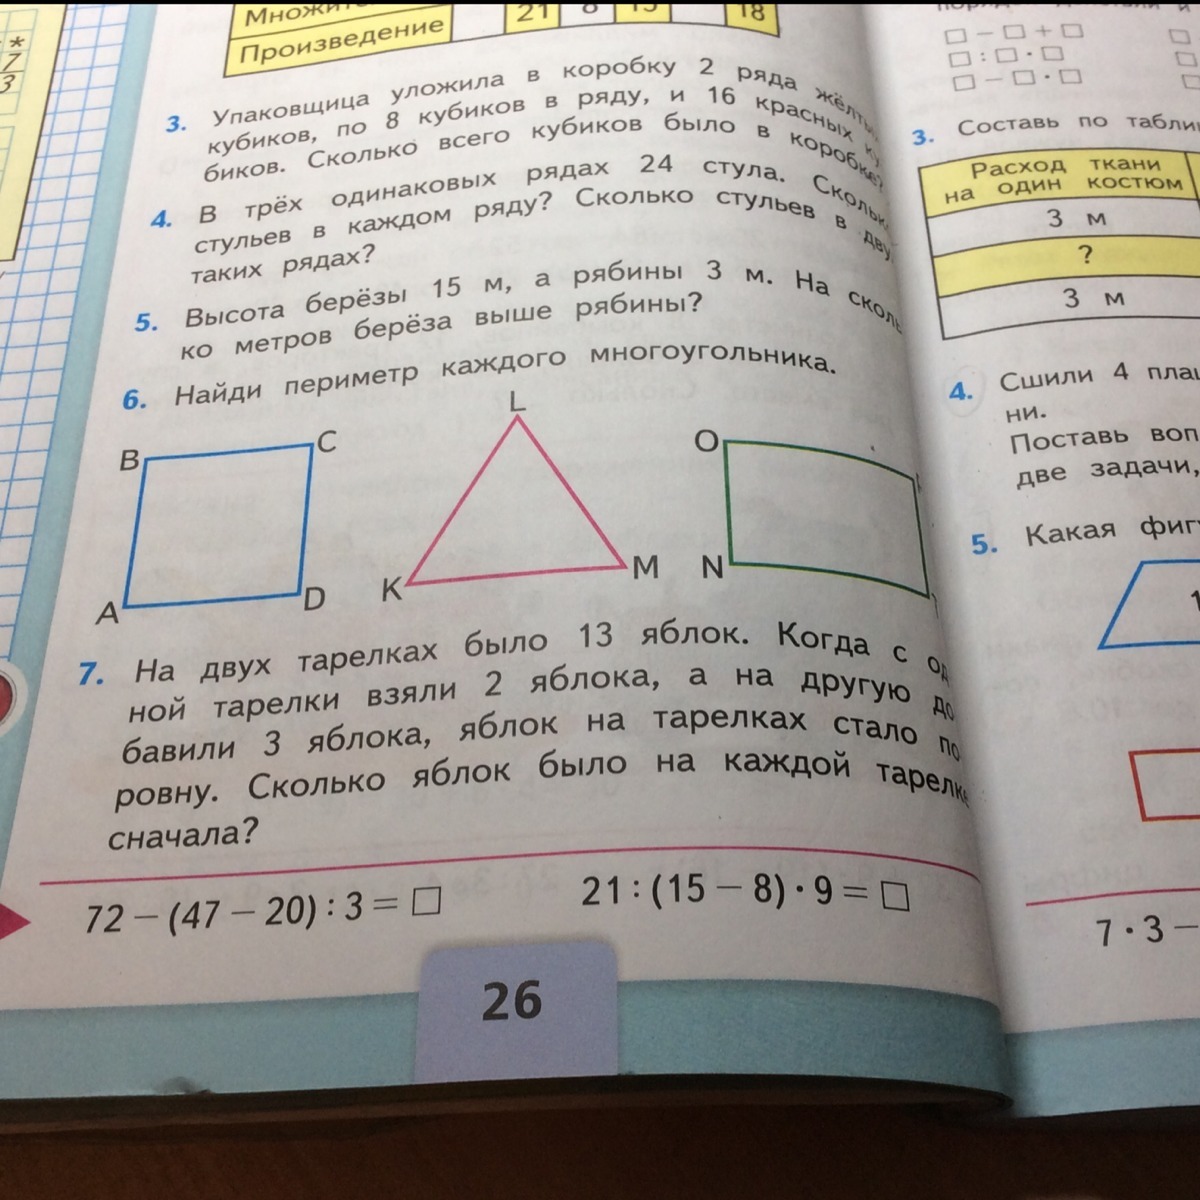 * 
7
3
Произведение
21
18
3. Упаковщица уложила в коробку 2 ряда
кубиков, по 8 кубиков в ряду, и 16 красных
биков. Сколько всего кубиков было в коробке?
4. В трёх одинаковых рядах 24 стула.
стульев в каждом ряду? Сколько стульев в двух
таких рядах?
5. Высота берёзы 15 м, а рябины 3 м. На сколь
ко метров берёза выше рябины?
6. Найди периметр каждого многоугольника.
B C L O
A D K M N
7. На двух тарелках было 13 яблок. Когда с од
ной тарелки взяли 2 яблока, а на другую до
бавили 3 яблока, яблок на тарелках стало по
ровну. Сколько яблок было на каждой тарелке
сначала?
72 − (47 − 20) : 3 = □
21 : (15 − 8) · 9 = □
26
□ − □ + □
□ : □ · □
□ − □ · □
3. Составь по
Расход ткани
на один костюм
3 м
?
3 м
4. Сшили 4
ни.
Поставь
две задачи,
5. Какая
1
7 · 3 −